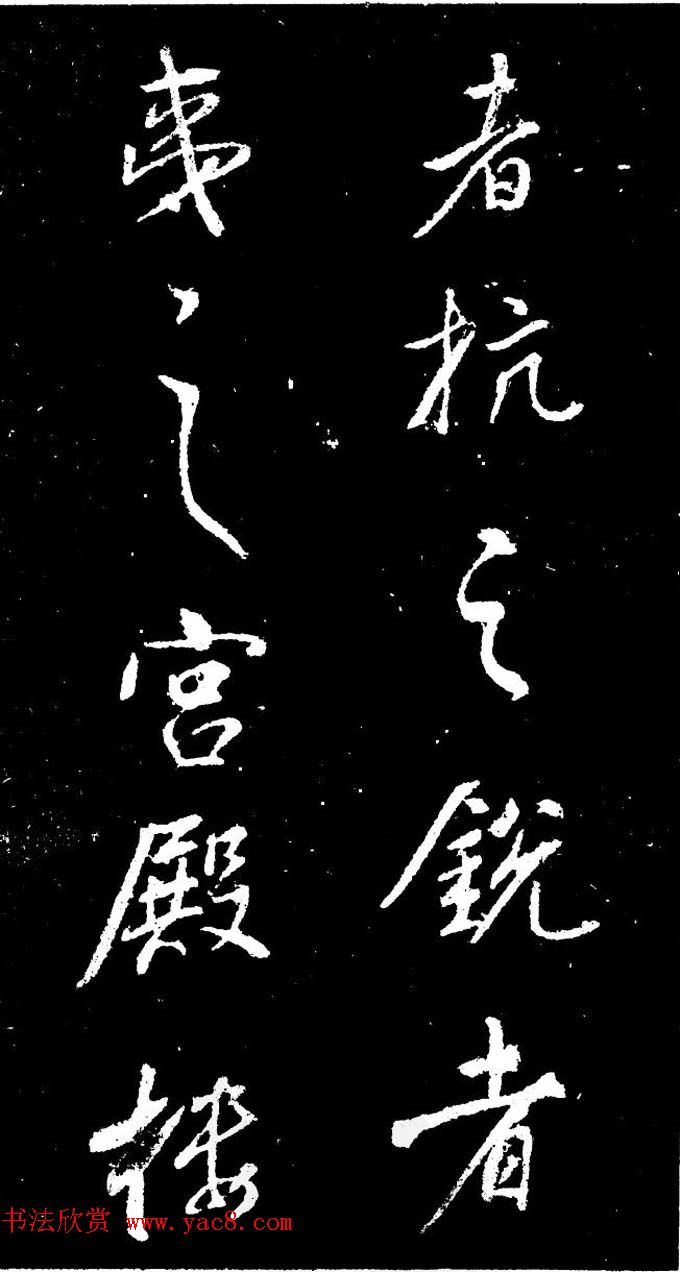 者抗之鋭者
夷之宮殿樓
书法欣赏 www.yac8.com